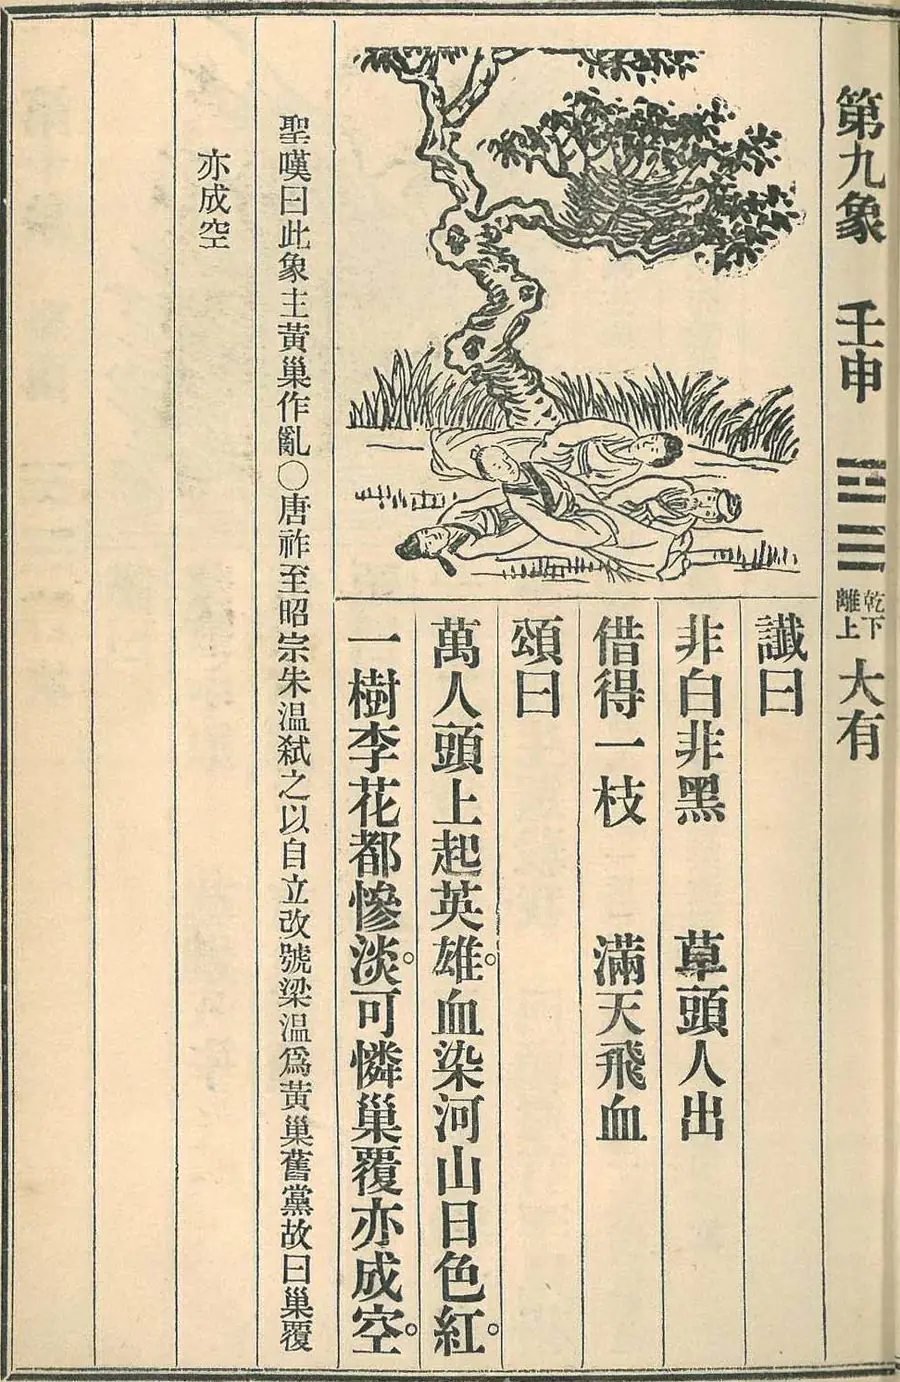 第九象 壬申 乾下離上 大有
讖曰
非白非黑 草頭人出
借得一枝 滿天飛血
頌曰
萬人頭上起英雄。血染河山日色紅。
一樹李花都慘淡。可憐巢覆亦成空。
聖嘆曰此象主黃巢作亂〇唐祚至昭宗朱溫弒之以自立改號梁溫為黃巢舊黨故曰巢覆
亦成空